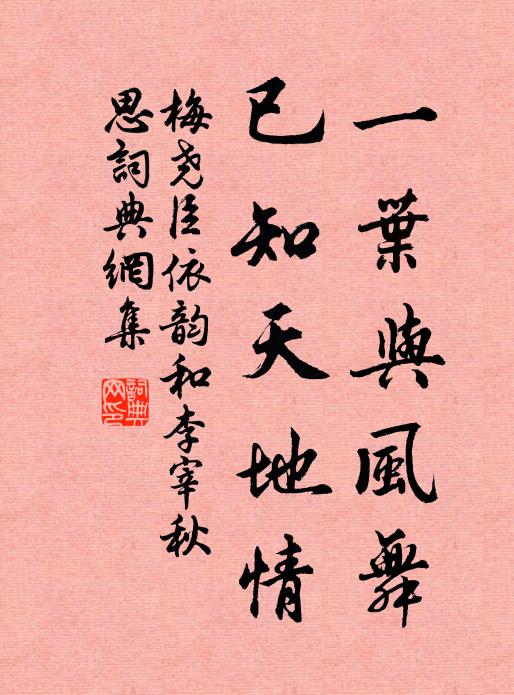 一葉與風舞
已知天地情
梅堯臣依韵和李宰秋
思詞典網集
詞典
网印